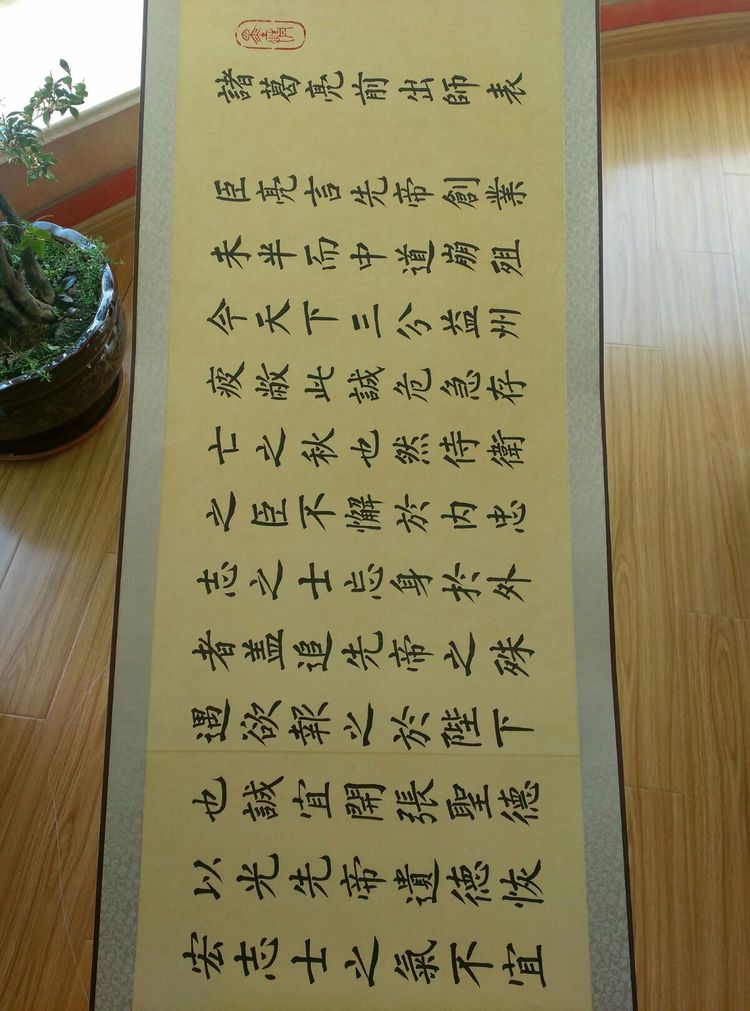 諸葛亮前出師表
臣亮言先帝創業
未半而中道崩殂
今天下三分益州
疲敝此誠危急存
亡之秋也然侍衛
之臣不懈於内忠
志之士忘身於外
者盖追先帝之殊
遇欲報之於陛下
也誠宜開張聖德
以光先帝遺德恢
宏志士之氣不宜